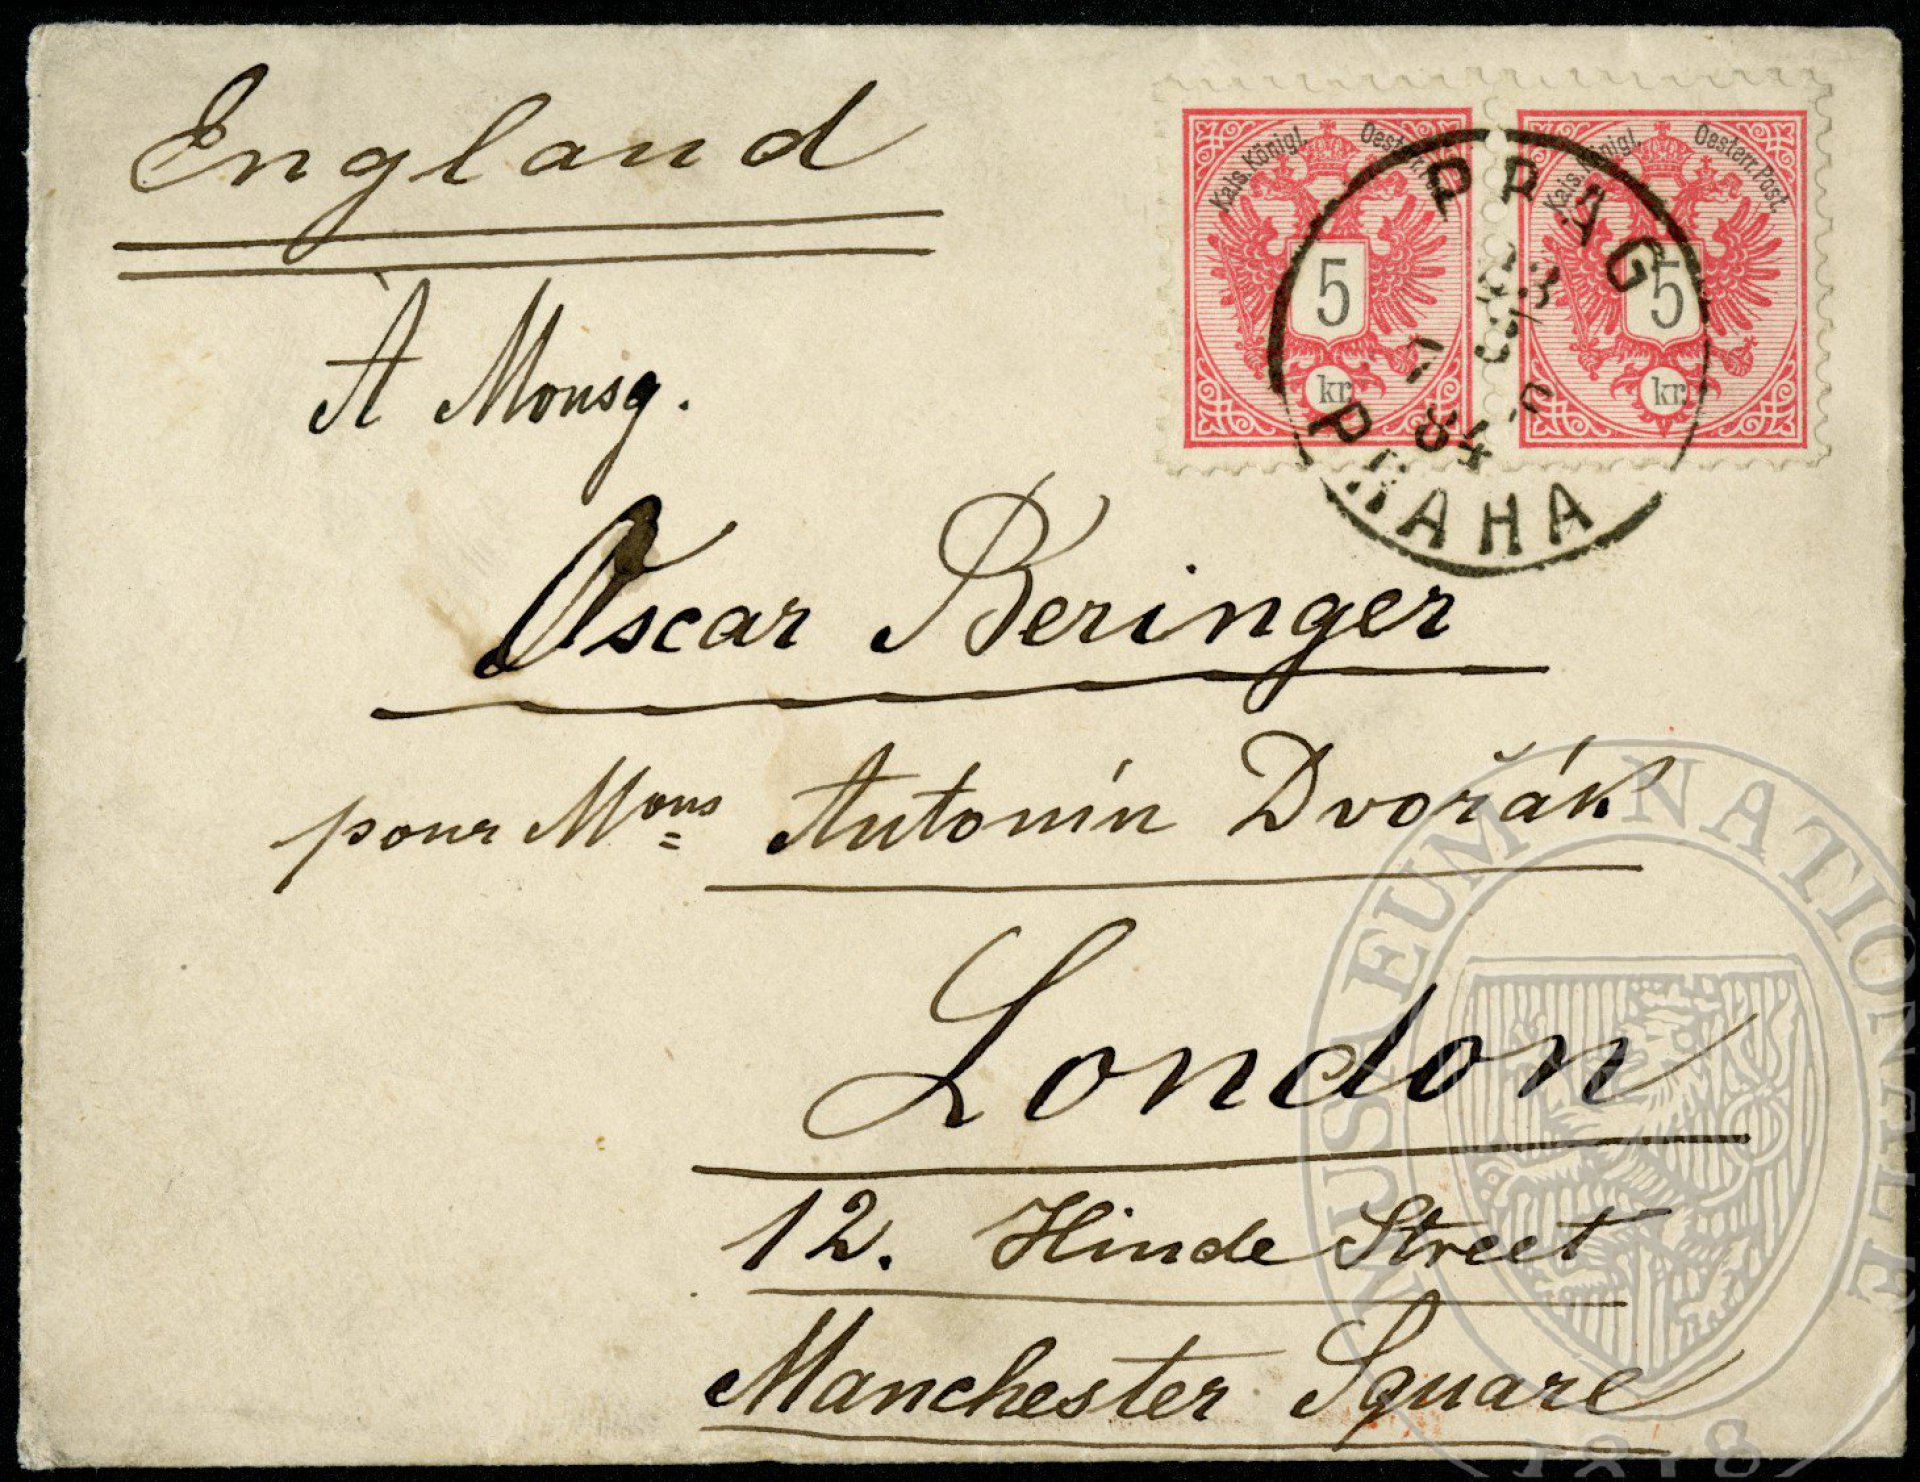 England
Kais. Königl. Oesterr.
5
kr.
Kais. Königl. Oesterr. Post.
5
kr.
PRAG
84
PRAHA
À Monsg.
Oscar Beringer
pour Mons Antonín Dvořák
London
12. Hinde Street
Manchester Square
MUSAEUM NATIONALE
1818